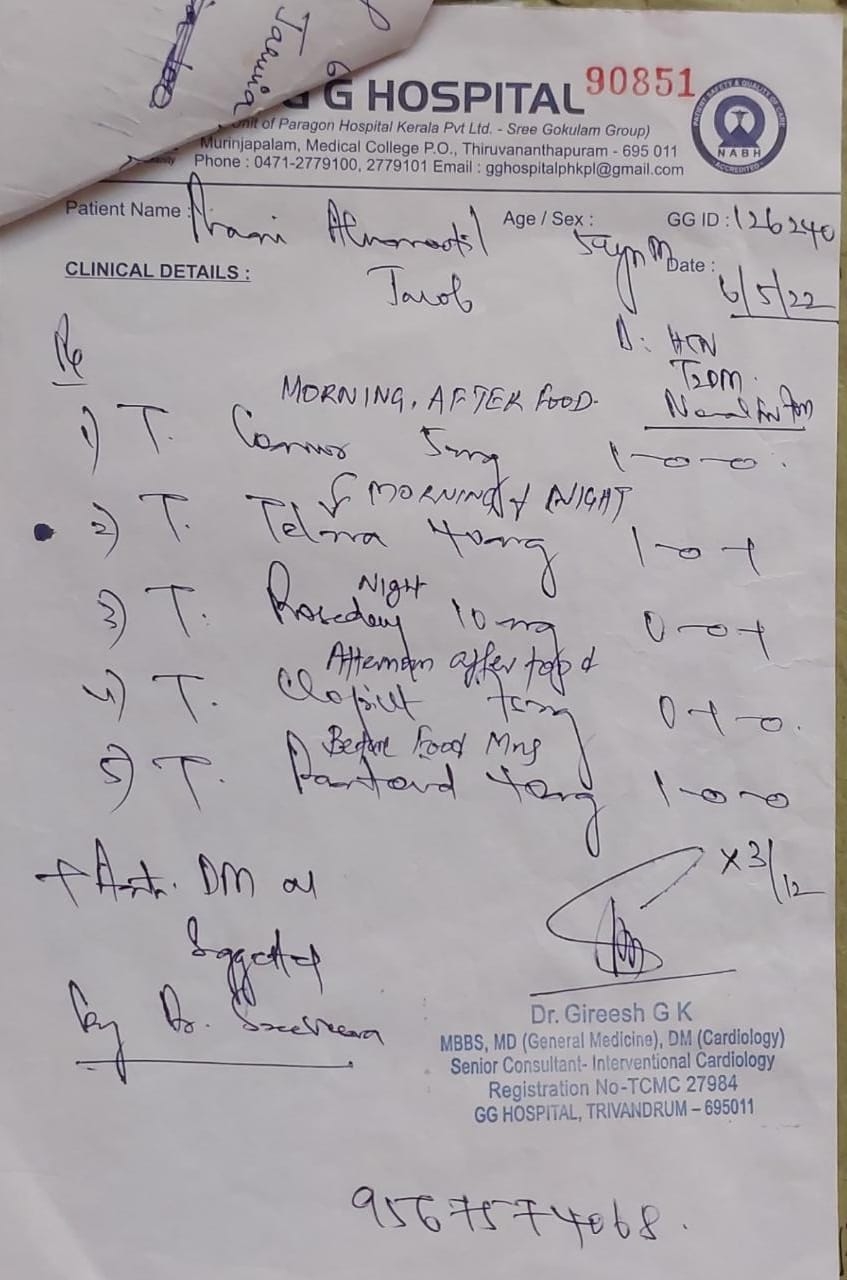 Tamia
G G HOSPITAL 90851
Unit of Paragon Hospital Kerala Pvt Ltd. - Sree Gokulam Group)
Murinjapalam, Medical College P.O., Thiruvananthapuram - 695 011
Phone : 0471-2779100, 2779101 Email : gghospitalphkpl@gmail.com
NABH
ACCREDITED
Patient Name :
Age / Sex : M
GG ID : 126240
Jacob
Date : 6/5/22
CLINICAL DETAILS :
D: HTN
T2DM
Rx
MORNING, AFTER FOOD.
1) T. 5mg 1-0-0.
MORNING & NIGHT
2) T. Telma 40mg 1-0-1
Night
3) T. Roseday 10mg 0-0-1
after food
4) T. Clopilet 75mg 0-1-0.
Before Food Mng
5) T. 40mg 1-0-0
x3/12
+ Anti. DM as
Suggested
by Dr.
Dr. Gireesh G K
MBBS, MD (General Medicine), DM (Cardiology)
Senior Consultant- Interventional Cardiology
Registration No-TCMC 27984
GG HOSPITAL, TRIVANDRUM – 695011
9567574068.